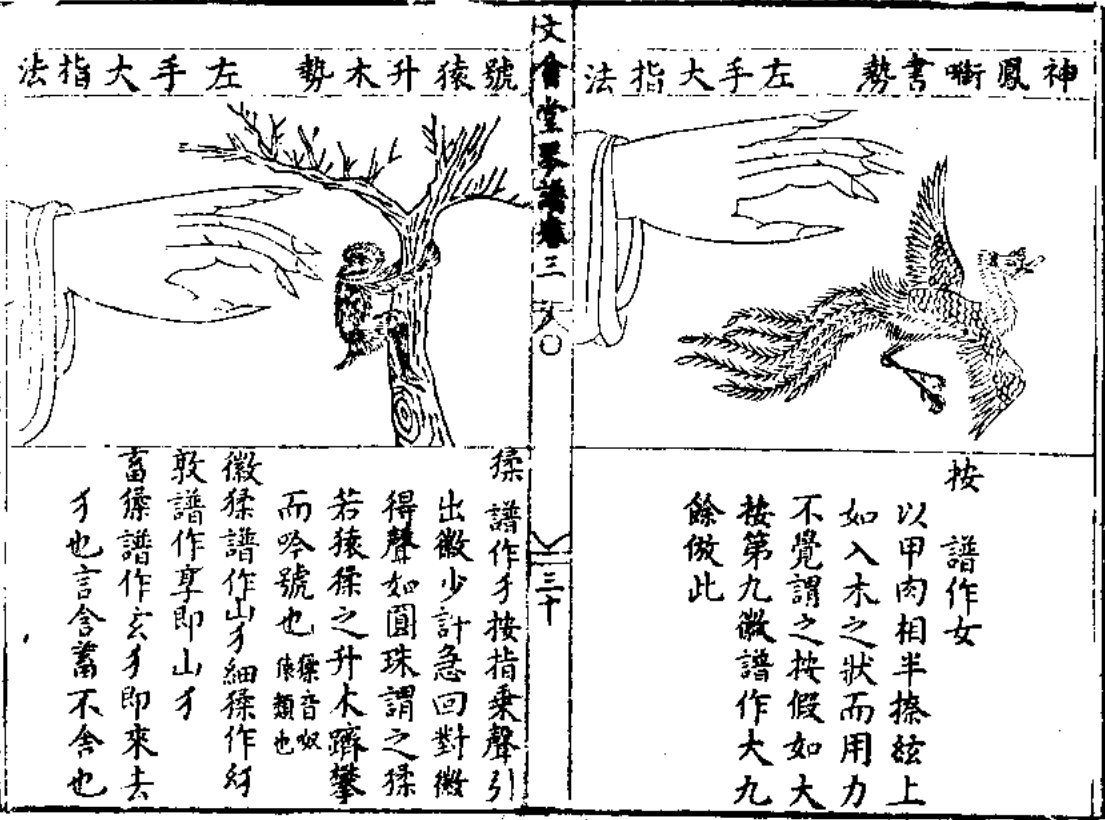 神鳳啣書勢 左手大指法
按 譜作女
以甲肉相半捺絃上
如入木之狀而用力
不覺謂之按假如大
按第九徽譜作大九
餘倣此
文會堂琴譜卷三
三十
號猿升木勢 左手大指法
猱 譜作犭按指乗聲引
出徽少許急回對徽
得聲如圓珠謂之猱
若猿猱之升木躋攀
而吟號也猱音呶猿類也
徽猱譜作山犭細猱作
敦譜作享即山犭
畜猱譜作玄犭即來去
犭也言含蓄不舍也